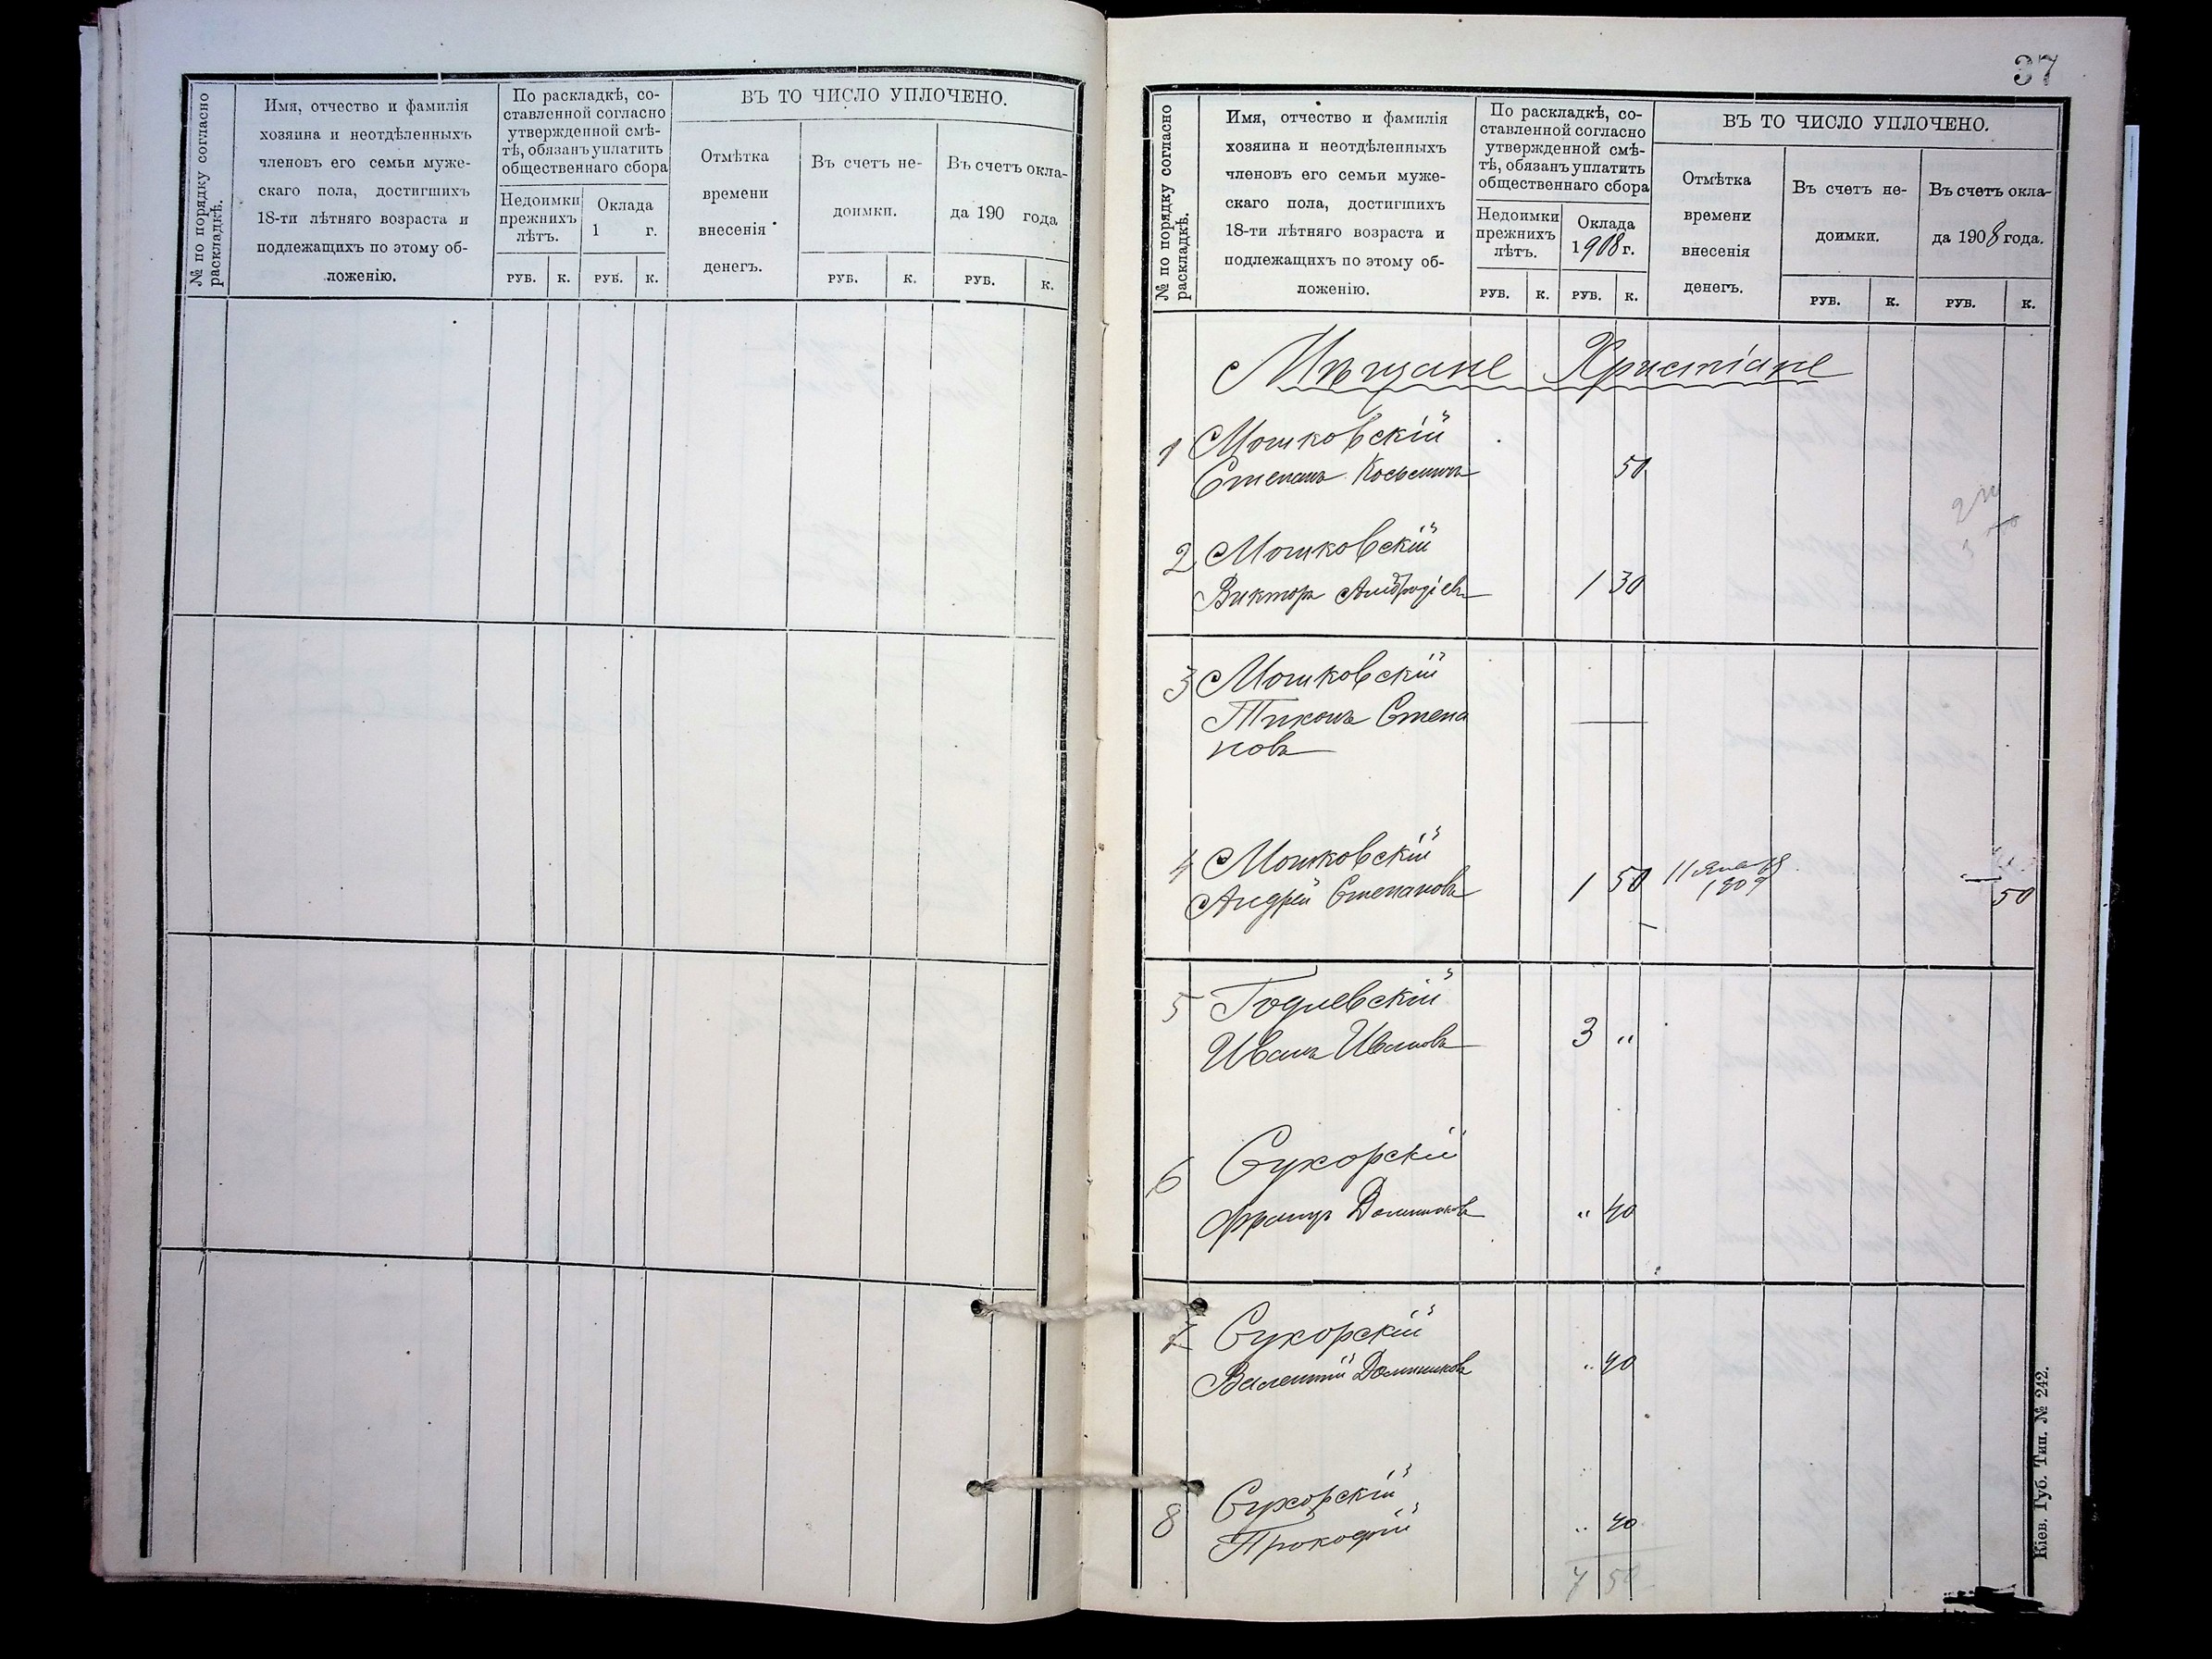 № по порядку согласно
раскладкѣ.
Имя, отчество и фамилія
хозяина и неотдѣленныхъ
членовъ его семьи муже-
скаго пола, достигшихъ
18-ти лѣтняго возраста и
подлежащихъ по этому об-
ложенію.
По раскладкѣ, со-
ставленной согласно
утвержденной смѣ-
тѣ, обязанъ уплатить
общественнаго сбора
Недоимки
прежнихъ
лѣтъ.
Оклада
1 г.
ВЪ ТО ЧИСЛО УПЛОЧЕНО.
Отмѣтка
времени
внесенія
денегъ.
Въ счетъ не-
доимки.
Въ счетъ окла-
да 190 года
РУБ. К. РУБ. К. РУБ. К. РУБ. К.
37
№ по порядку согласно
раскладкѣ.
Имя, отчество и фамилія
хозяина и неотдѣленныхъ
членовъ его семьи муже-
скаго пола, достигшихъ
18-ти лѣтняго возраста и
подлежащихъ по этому об-
ложенію.
По раскладкѣ, со-
ставленной согласно
утвержденной смѣ-
тѣ, обязанъ уплатить
общественнаго сбора
Недоимки
прежнихъ
лѣтъ.
Оклада
1908 г.
ВЪ ТО ЧИСЛО УПЛОЧЕНО.
Отмѣтка
времени
внесенія
денегъ.
Въ счетъ не-
доимки.
Въ счетъ окла-
да 1908 года.
РУБ. К. РУБ. К. РУБ. К. РУБ. К.
Мѣщане Христіане
1 Мошковскій
Степанъ 50
2 Мошковскій
Викторъ 1 30
3 Мошковскій
Тихонъ Степа
новъ —
4 Мошковскій
Андрей Степановъ 1 50 11 Января 1909 — 50
5 Годлевскій
Иванъ Ивановъ 3 "
6 Сухорскій
Францъ Доминиковъ " 40
7 Сухорскій
Валентій Доминиковъ " 40
8 Сухорскій
Прокофій " 40
7 50
Кіев. Губ. Тип. № 242.